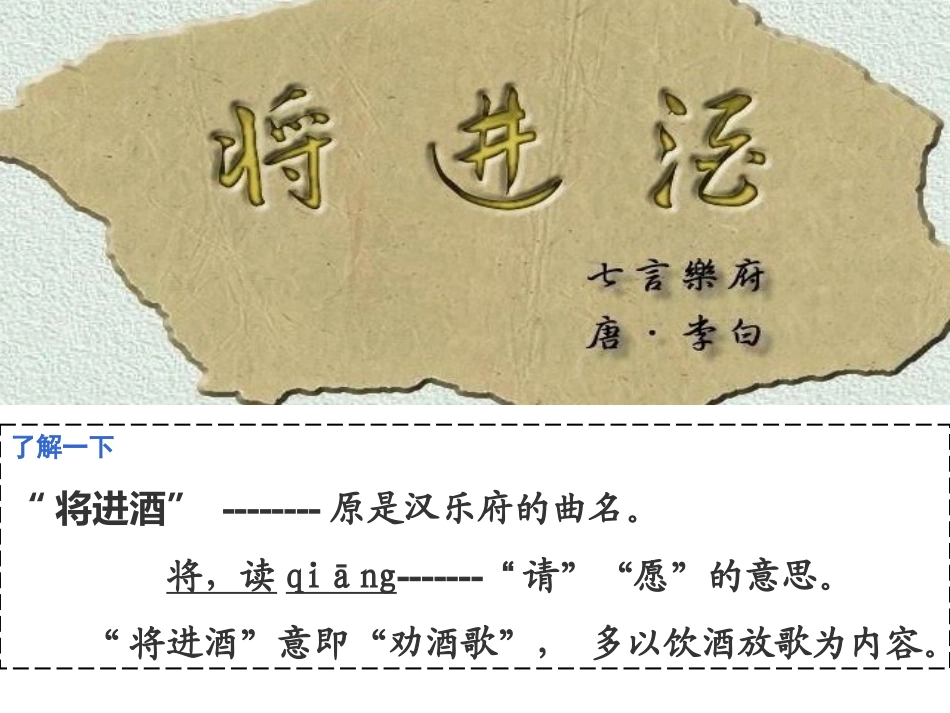 将进酒
七言樂府
唐·李白
了解一下
“将进酒” --------原是汉乐府的曲名。
将，读qiāng-------“请”“愿”的意思。
“将进酒”意即“劝酒歌”， 多以饮酒放歌为内容。